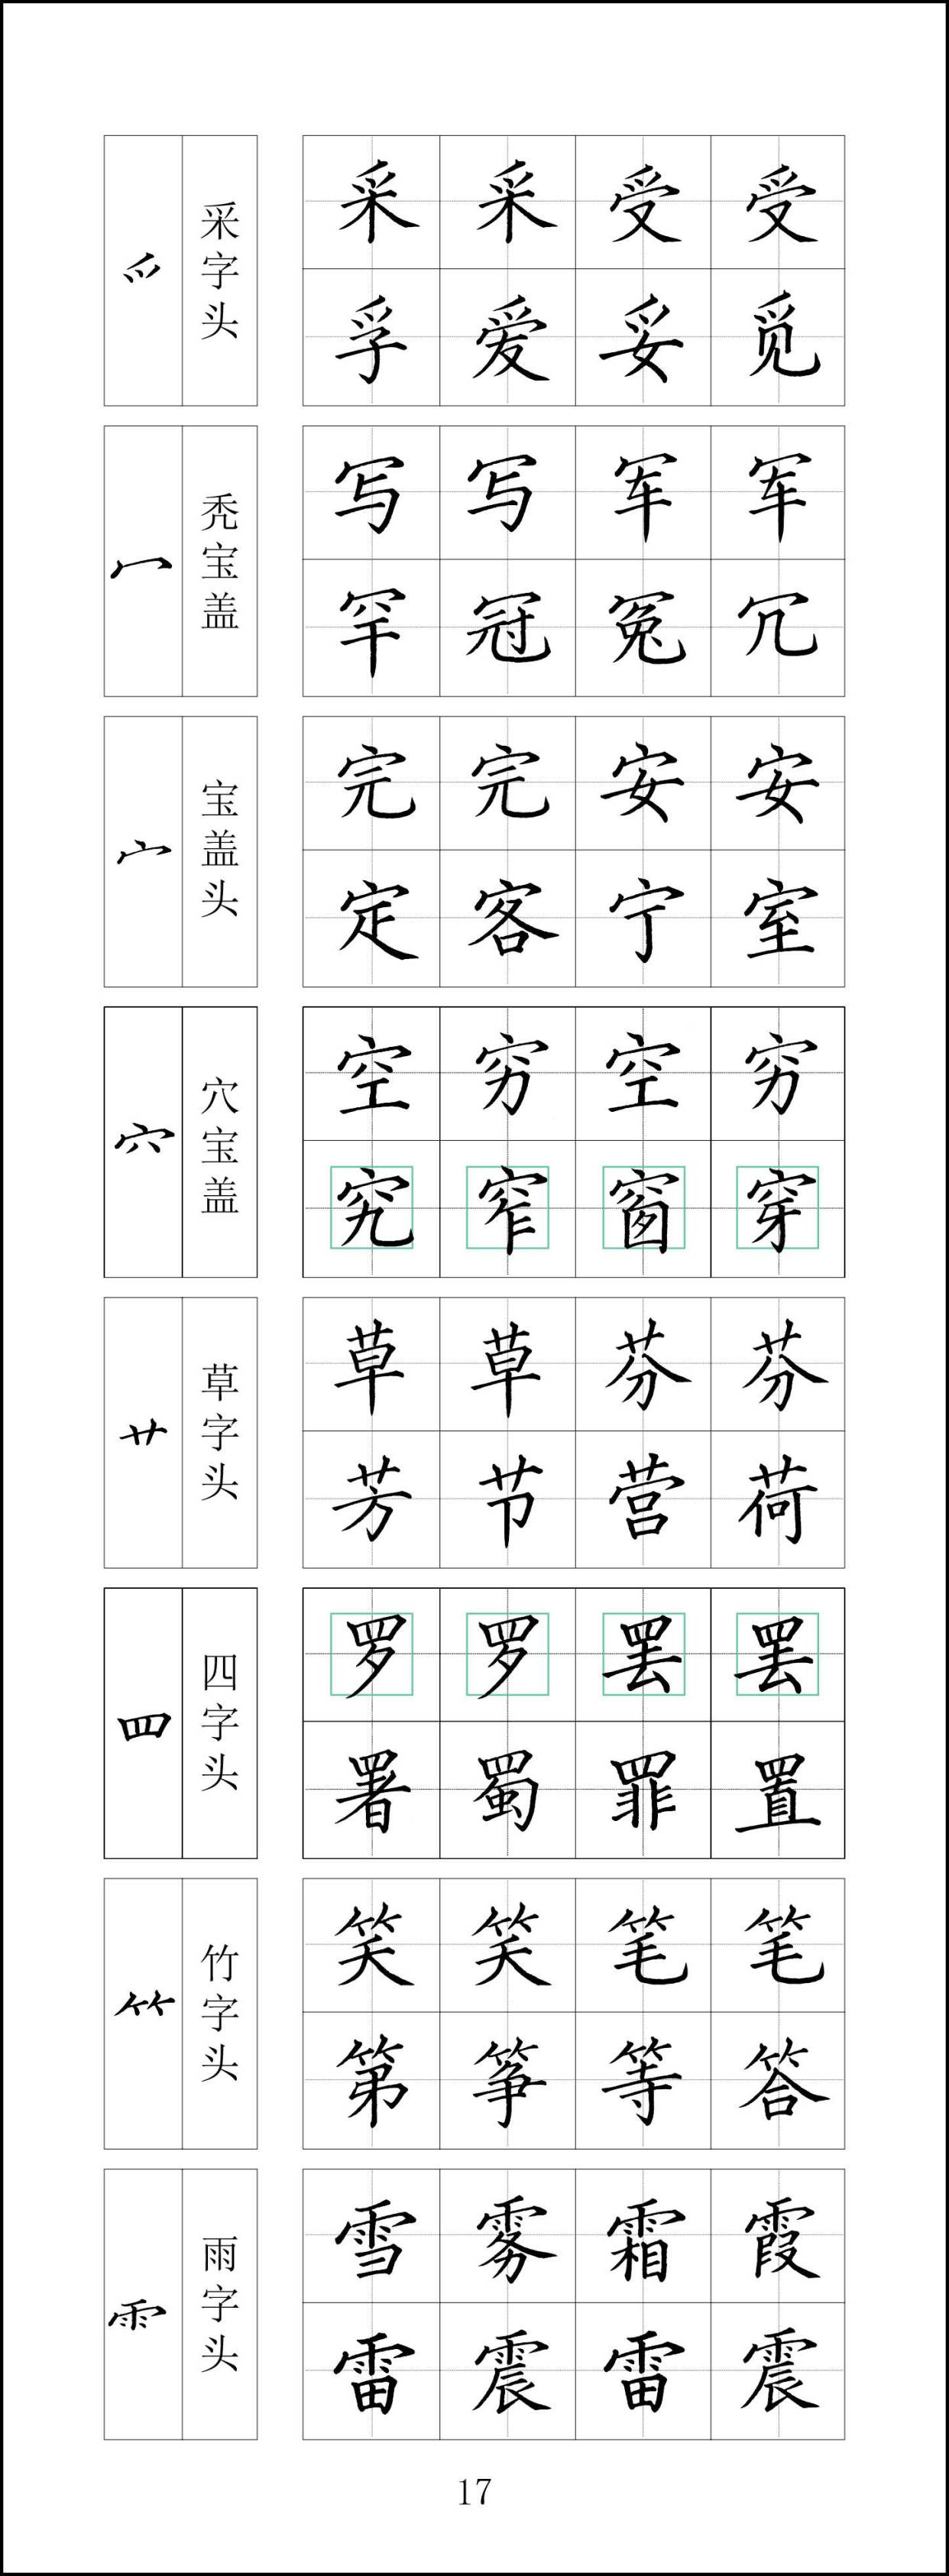 爫 采字头
采 采 受 受
孚 爱 妥 觅
冖 秃宝盖
写 写 军 军
罕 冠 冤 冗
宀 宝盖头
完 完 安 安
定 客 宁 室
穴 穴宝盖
空 穷 空 穷
究 窄 窗 穿
艹 草字头
草 草 芬 芬
芳 节 营 荷
罒 四字头
罗 罗 罢 罢
署 蜀 罪 置
⺮ 竹字头
笑 笑 笔 笔
第 筝 等 答
⻗ 雨字头
雪 雾 霜 霞
雷 震 雷 震
17